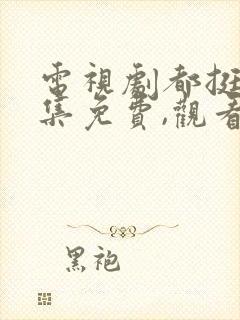 電視劇都挺
集免費,觀看
黑袍